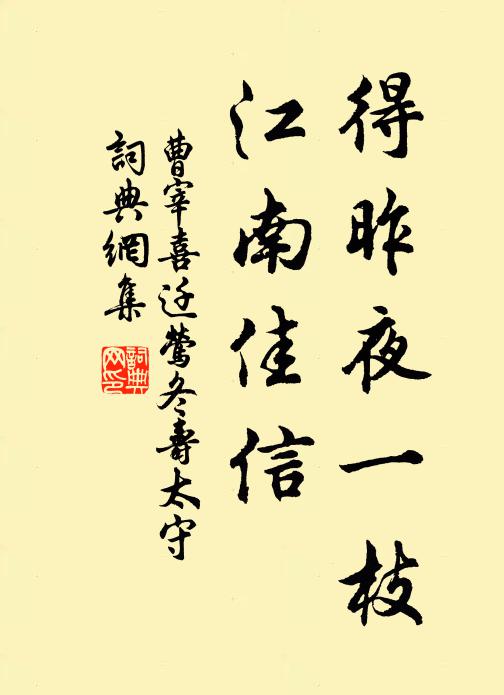 得昨夜一枝
江南佳信
曹宰喜迁莺冬壽太守
詞典網集
詞典
网印